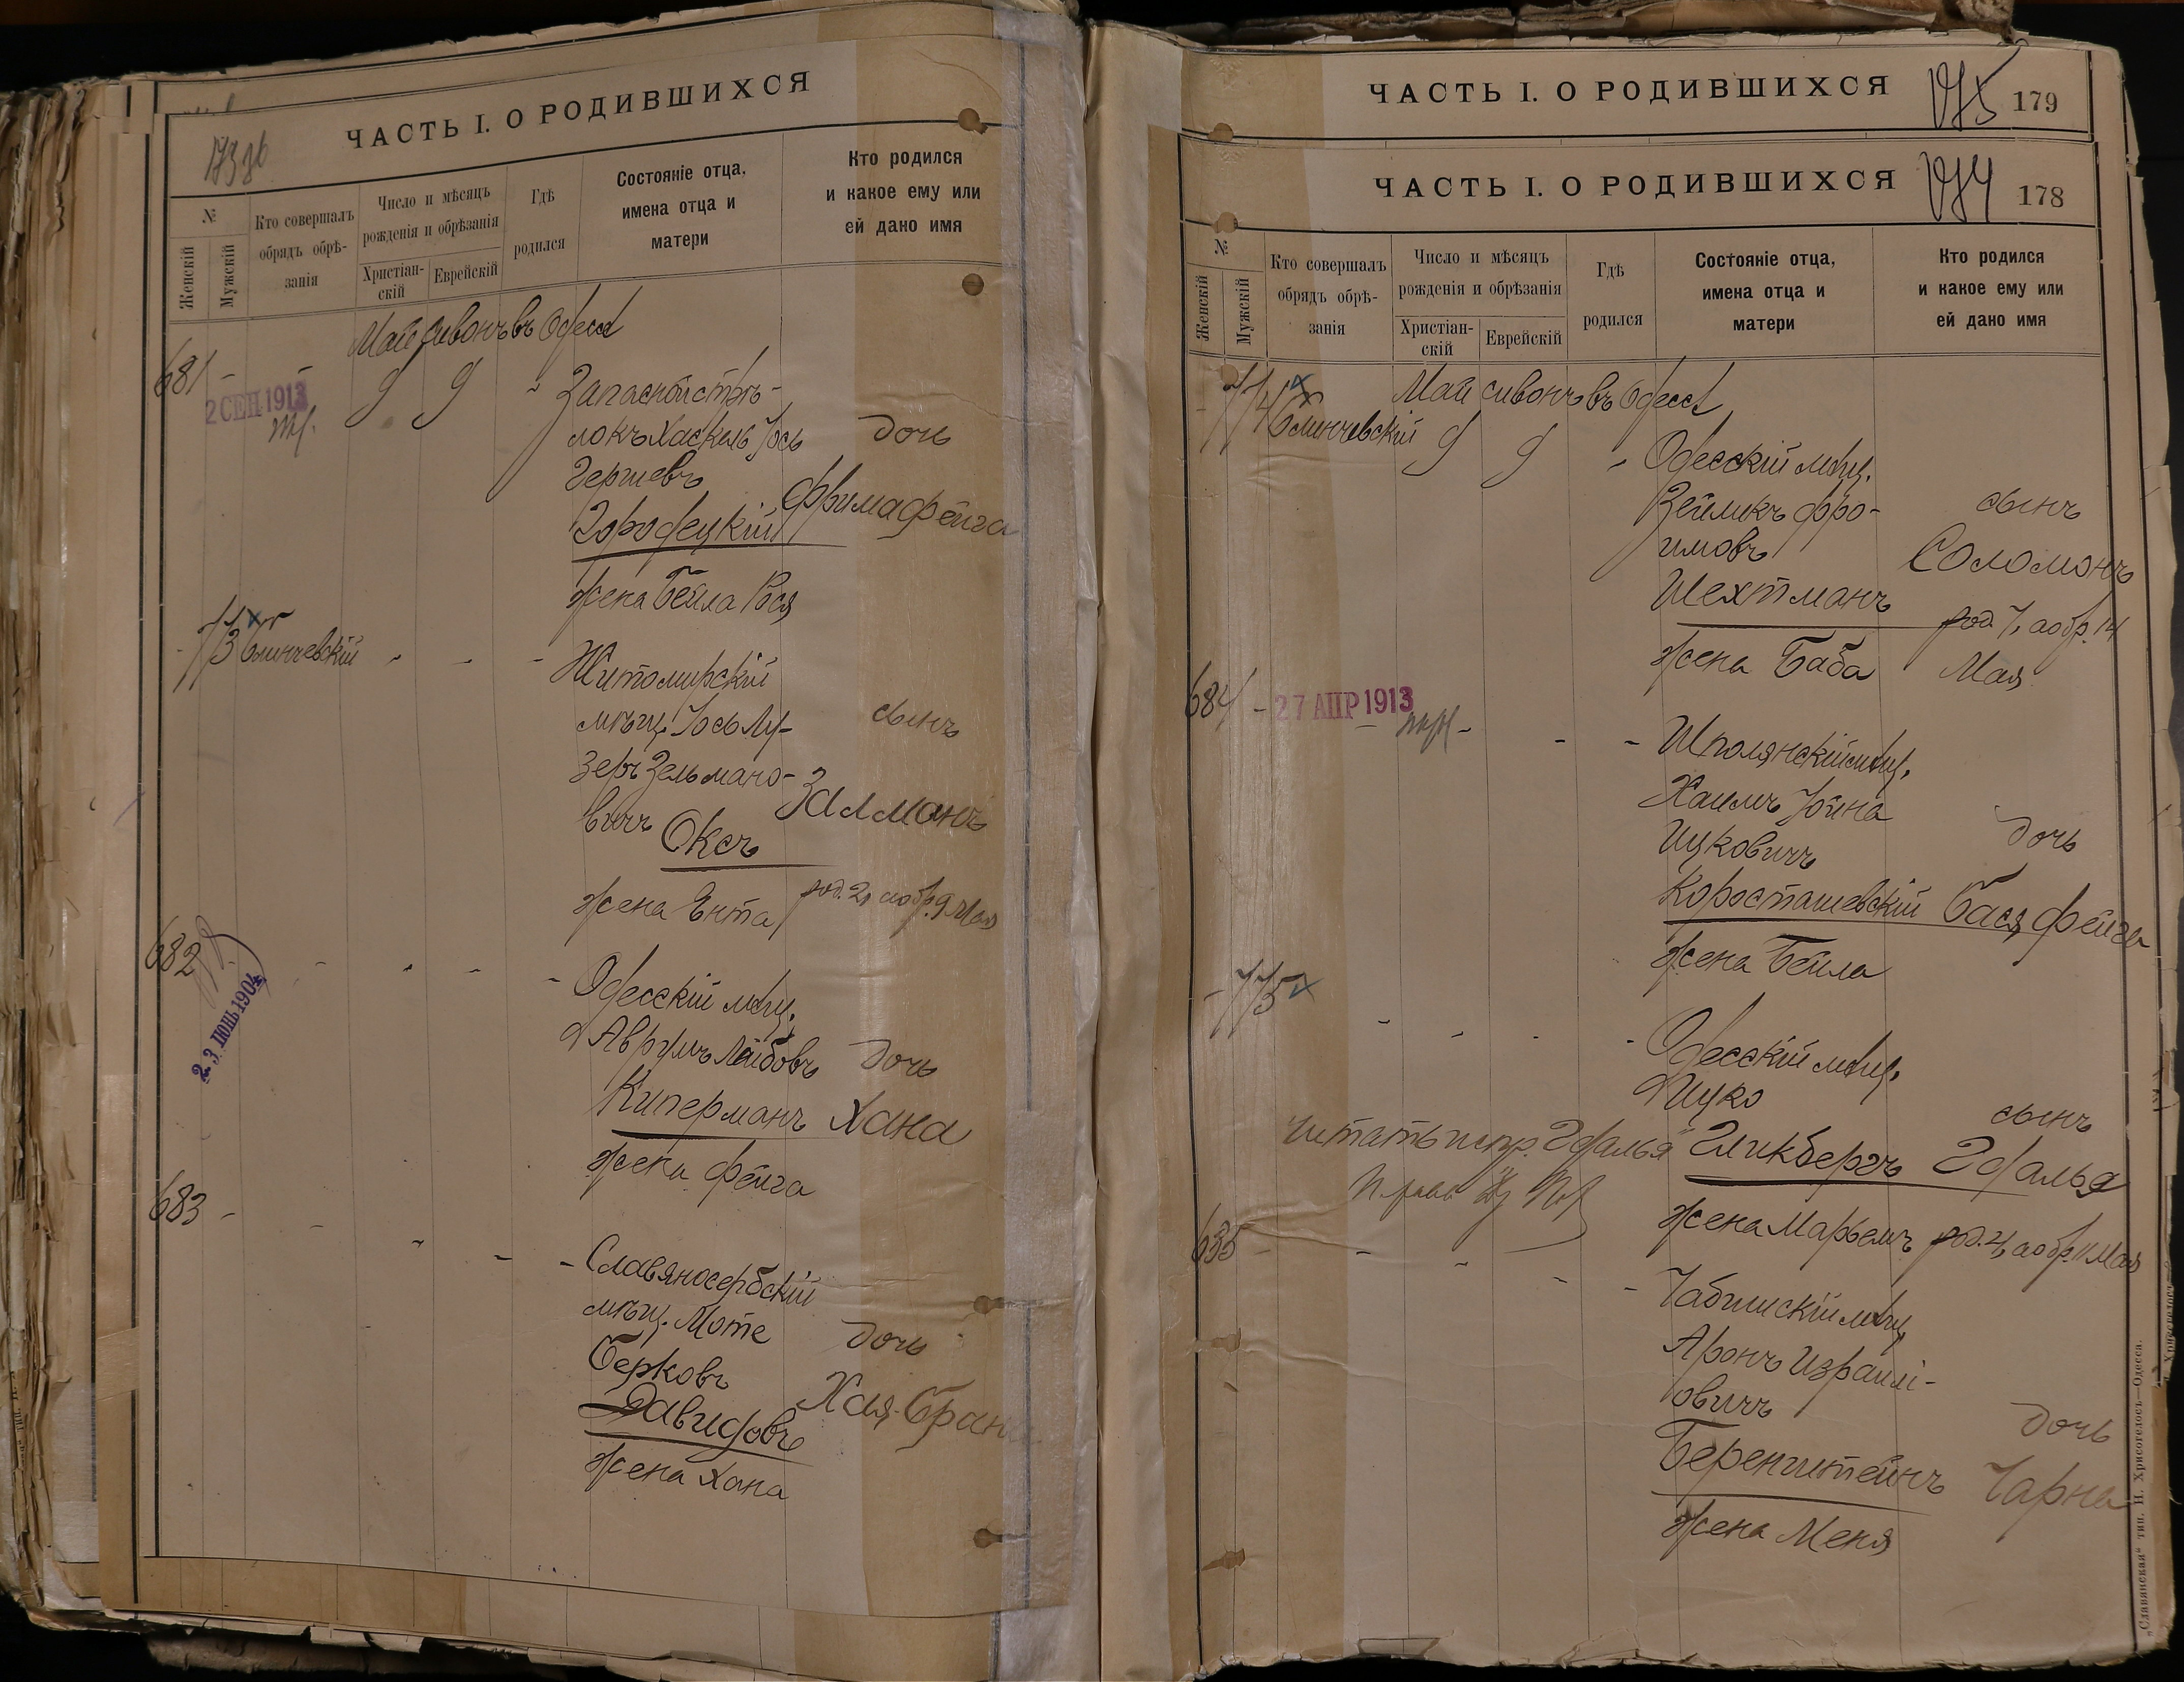 ЧАСТЬ I. О РОДИВШИХСЯ
№
Женскій
Мужскій
Кто совершалъ
обрядъ обрѣ-
занія
Число и мѣсяцъ
рожденія и обрѣзанія
Христіан-
скій
Еврейскій
Гдѣ
родился
Состояніе отца,
имена отца и
матери
Кто родился
и какое ему или
ей дано имя
Май Сивонъ въ Одессѣ
681 - - 9 9 "
2 СЕН 1913
Запасной стрѣ-
локъ Хаскель Іось
Гершевъ
Городецкій
жена Бейла Рося
дочь
Фрима Фейга
- 773 Блинчевскій - - -
Житомирскій
мѣщ. Іось Лу-
зеръ Зельмано-
вичъ Оксъ
жена Ента
сынъ
Залманъ
род. 2, а обр. 9 Мая
682 - - - -
2 3 ІЮНЬ 1904
Одесскій мѣщ.
Аврумъ Лейбовъ
Киперманъ
жена Фейга
дочь
Хана
683 - - - - -
Славяносербскій
мѣщ. Моте
Берковъ
Давидовъ
жена Хана
дочь
Хая-Бран
ЧАСТЬ I. О РОДИВШИХСЯ
175 179
ЧАСТЬ I. О РОДИВШИХСЯ
174 178
№
Женскій
Мужскій
Кто совершалъ
обрядъ обрѣ-
занія
Число и мѣсяцъ
рожденія и обрѣзанія
Христіан-
скій
Еврейскій
Гдѣ
родился
Состояніе отца,
имена отца и
матери
Кто родился
и какое ему или
ей дано имя
Май Сивонъ въ Одессѣ
- 774 Блинчевскій 9 9 "
Одесскій мѣщ.
Зейликъ Фро-
имовъ
Шехтманъ
жена Баба
сынъ
Соломонъ
род. 7, а обр. 14
Мая
684 - - - - -
27 АПР 1913
Шполянскій мѣщ.
Хаимъ Іойна
Ицковичъ
Коросташевскій
жена Бейла
дочь
Бася Фейга
- 775 - - - -
Одесскій мѣщ.
Ицко
Гликбергъ
жена Марьемъ
сынъ
Гдалья
род. 4, а обр. 11 Мая
Читать испр. "Гдалья"
635 - - - - -
Аронъ Израилі-
овичъ
Беренштейнъ
жена Меня
дочь
Чарна
„Славянская“ тип. Н. Хрисогелосъ—Одесса.